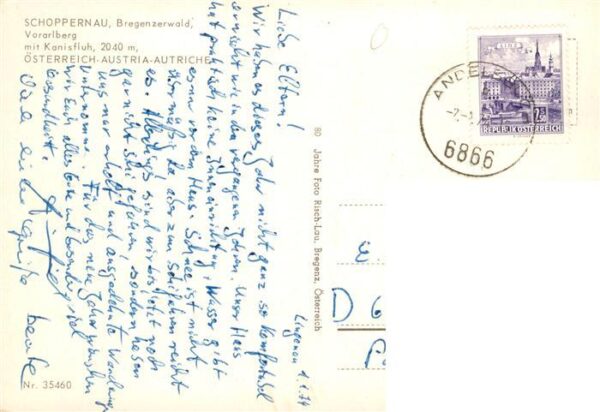 SCHOPPERNAU, Bregenzerwald,
Vorarlberg
mit Kanisfluh, 2040 m,
ÖSTERREICH-AUSTRIA-AUTRICHE
Lingenau 1.1.74
Liebe Eltern!
Wir haben es dieses Jahr nicht ganz so komfortabel
erwischt wie in den vergangenen Jahren. Unser Haus
hat praktisch keine Inneneinrichtung, Wasser gibt
es nur vor dem Haus. Schnee ist nicht
übermäßig da aber zum Schifahren reicht
es. Allerdings sind wir bis jetzt noch
gar nicht Schi gefahren, sondern haben
uns nur erholt und ausgedehnte Wanderungen
unternommen. Für das neue Jahr wünschen
wir Euch alles Gute und besonders viel
Gesundheit.
Viele liebe Grüße
80 Jahre Foto Risch-Lau, Bregenz, Österreich
Nr. 35460
LINZ
REPUBLIK ÖSTERREICH
6866
D